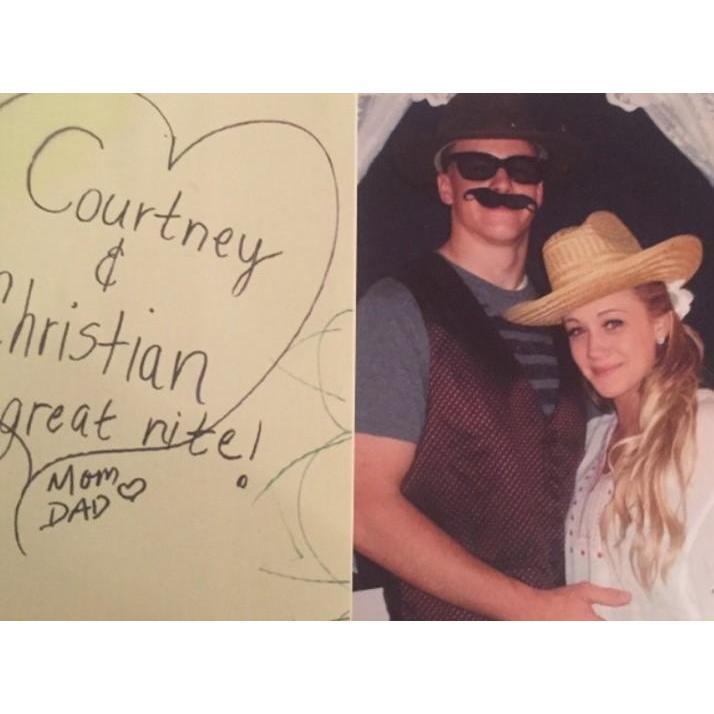 Courtney
&
Christian
great nite!
Mom
DAD